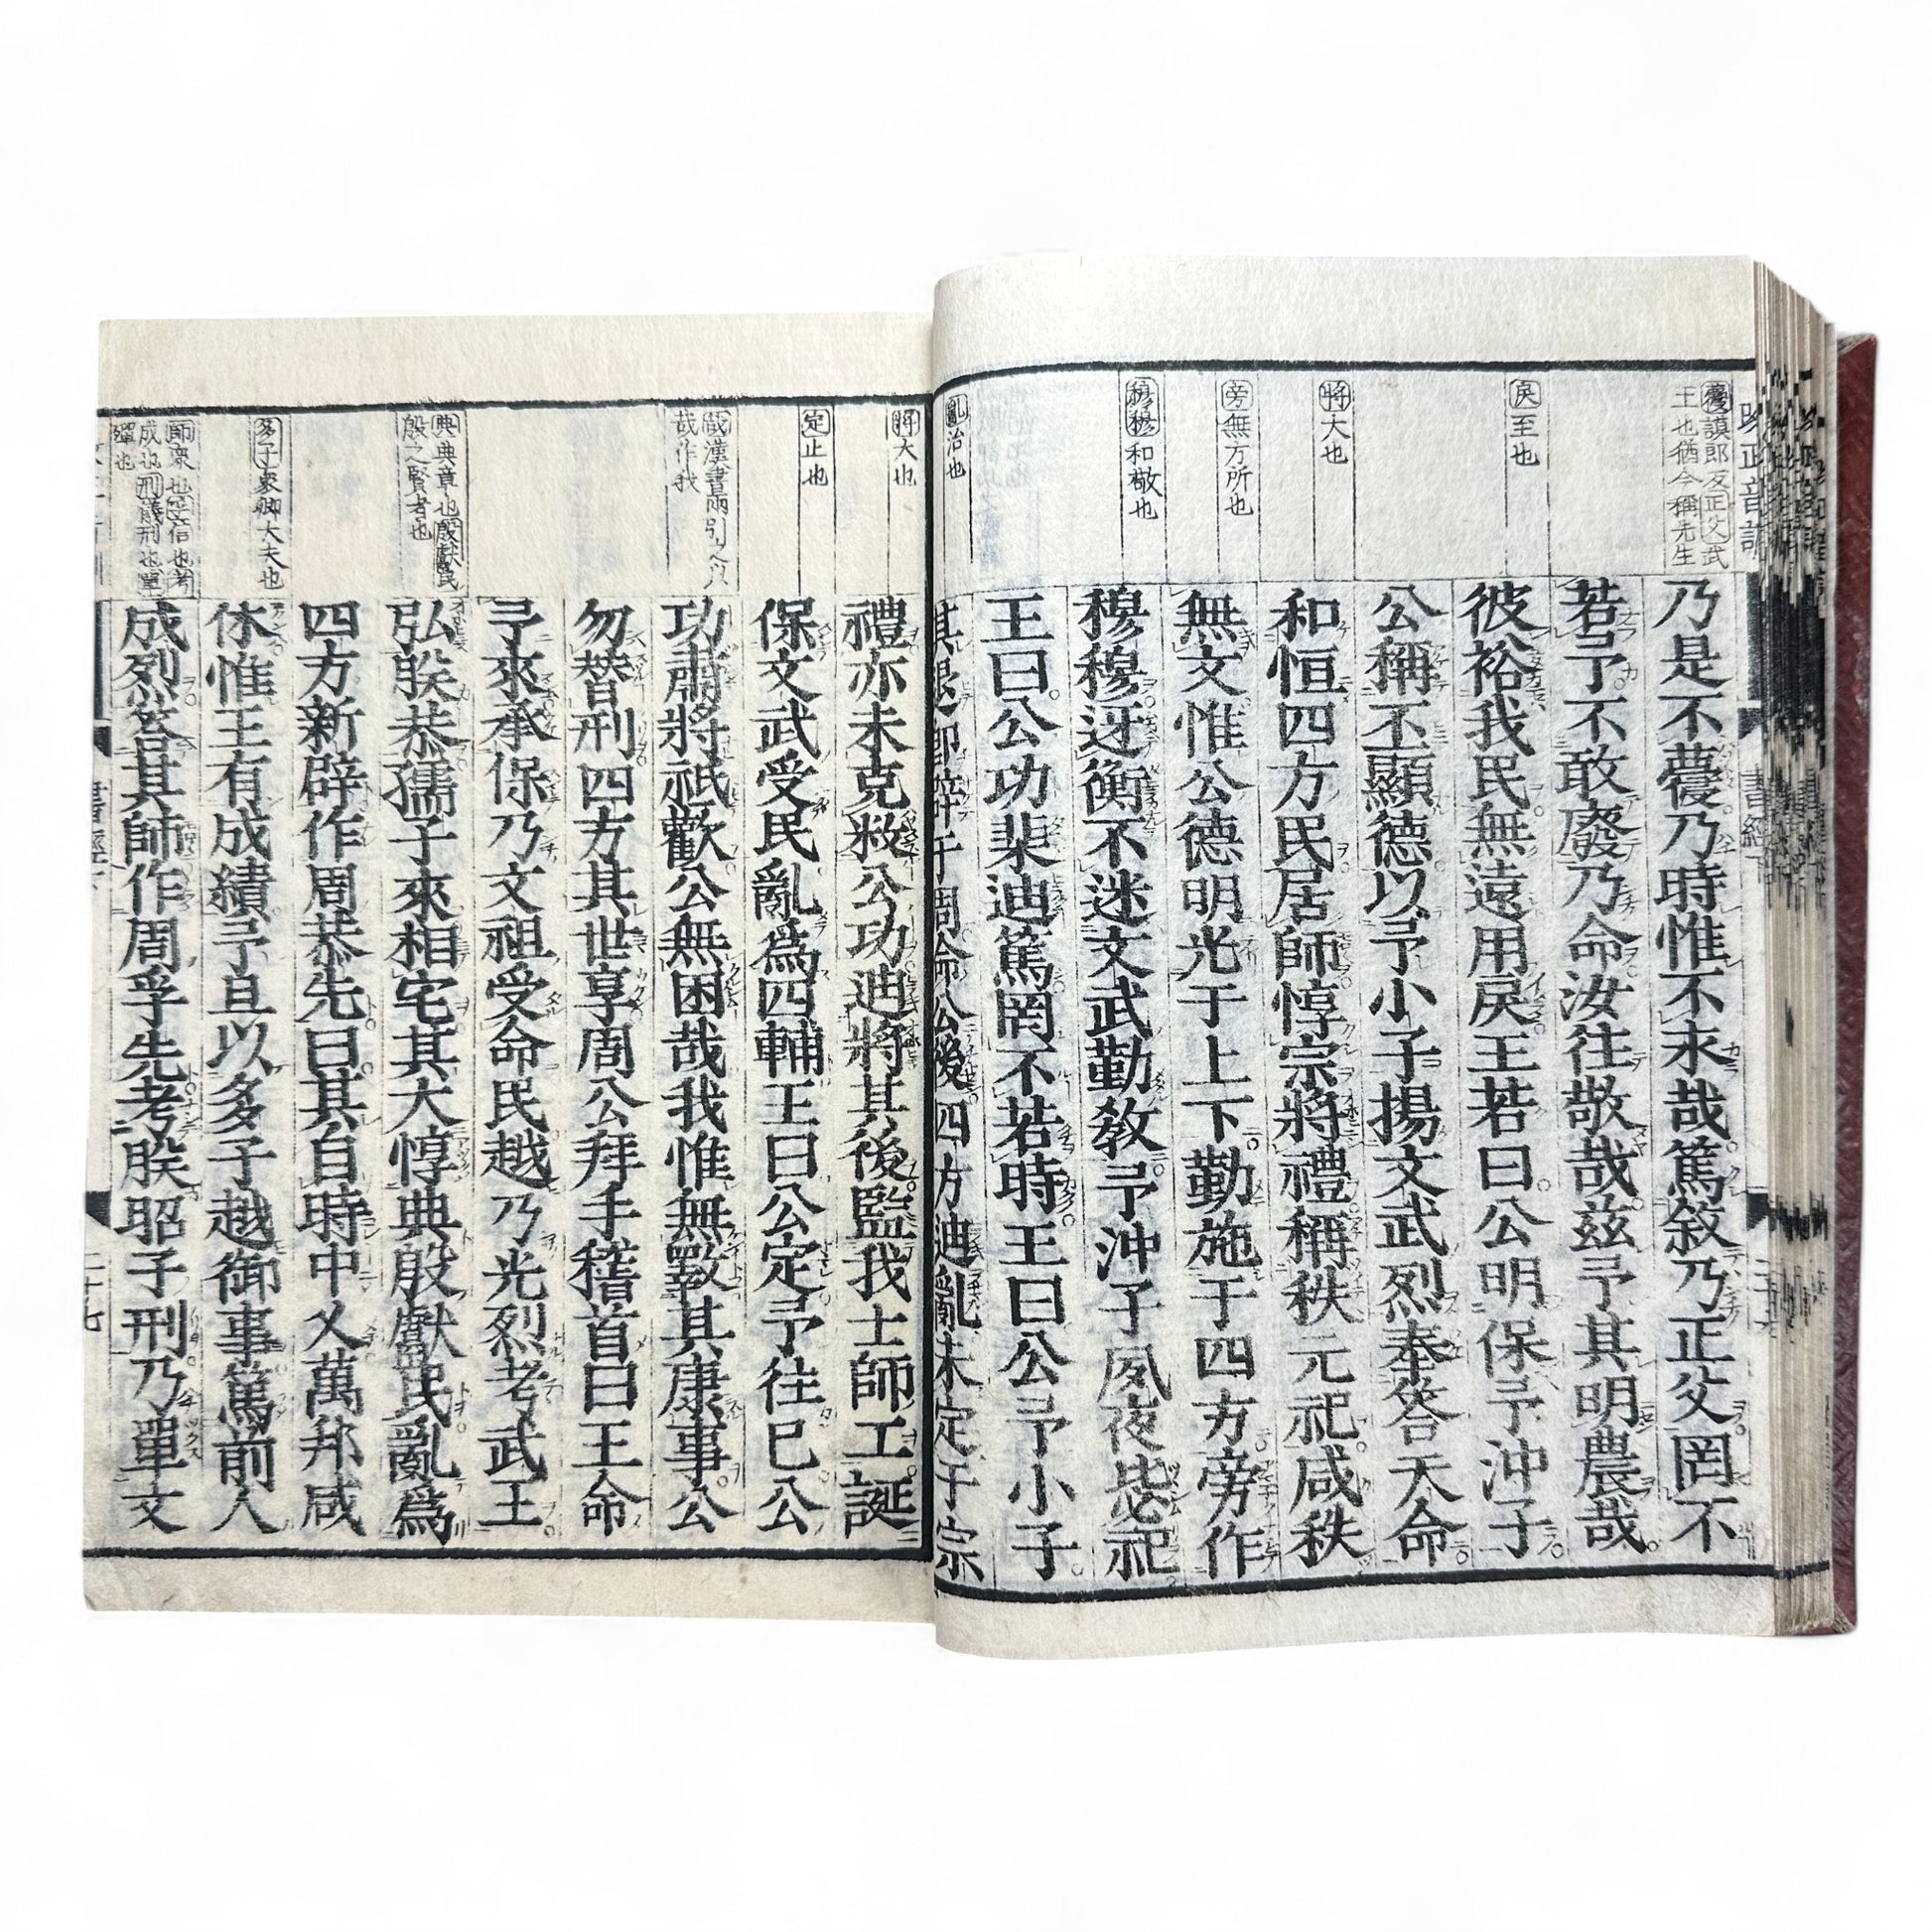 蘉謨郎反正父武
王也猶今稱先生
戾至也
將大也
旁無方所也
穆穆和敬也
亂治也
乃是不蘉乃時惟不永哉篤敘乃正父罔不
若予不敢廢乃命汝往敬哉茲予其明農哉
彼裕我民無遠用戾王若曰公明保予沖子
公稱丕顯德以予小子揚文武烈奉答天命
和恒四方民居師惇宗將禮稱秩元祀咸秩
無文惟公德明光于上下勤施于四方旁作
穆穆迓衡不迷文武勤教予沖子夙夜毖祀
王曰公功棐迪篤罔不若時王曰公予小子
其退即辟于周命公後四方迪亂未定于宗
將大也
定止也
哉漢書兩引之以
哉作我
典典章也殷獻民
殷之賢者也
多子衆卿大夫也
師衆也孚信也考
成也刑儀刑也單
殫也
禮亦未克敉公功迪將其後監我士師工誕
保文武受民亂爲四輔王曰公定予往已公
功肅將祗歡公無困哉我惟無斁其康事公
勿替刑四方其世享周公拜手稽首曰王命
予來承保乃文祖受命民越乃光烈考武王
弘朕恭孺子來相宅其大惇典殷獻民亂爲
四方新辟作周恭先曰其自時中乂萬邦咸
休惟王有成績予旦以多子越御事篤前人
成烈答其師作周孚先考朕昭子刑乃單文